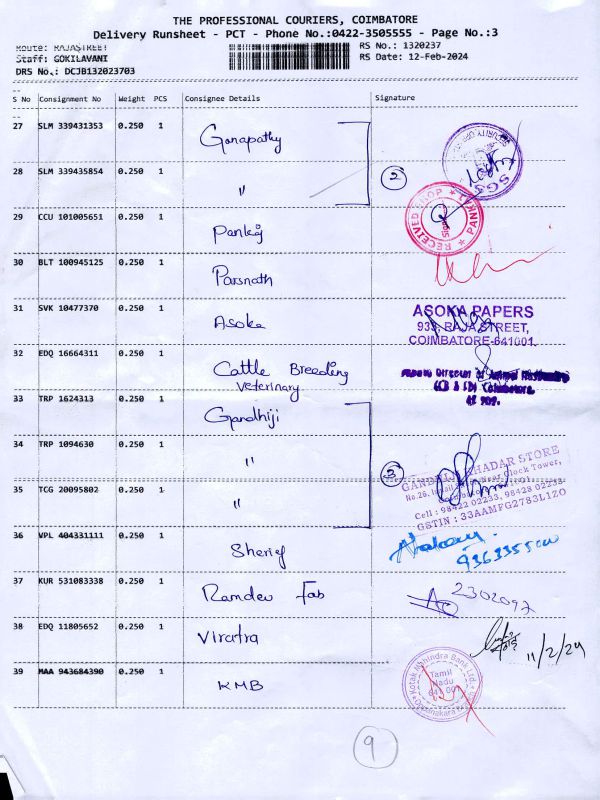 THE PROFESSIONAL COURIERS, COIMBATORE
Delivery Runsheet - PCT - Phone No.:0422-3505555 - Page No.:3
Route: RAJASTREET
RS No.: 1320237
Staff: GOKILAVANI
RS Date: 12-Feb-2024
DRS No.: DCJB132023703
S No Consignment No Weight PCS Consignee Details Signature
27 SLM 339431353 0.250 1 Ganapathy
28 SLM 339435854 0.250 1 "
2
SGS
29 CCU 101005651 0.250 1 Pankaj
RECEIVED SHOP
30 BLT 100945125 0.250 1 Parsnath
31 SVK 10477370 0.250 1 Asoka
ASOKA PAPERS
933, RAJA STREET,
COIMBATORE-641001.
32 EDQ 16664311 0.250 1 Cattle Breeding
Veterinary
33 TRP 1624313 0.250 1 Gandhiji
34 TRP 1094630 0.250 1 "
3
KHADAR STORE
Near Clock Tower,
35 TCG 20095802 0.250 1 "
Cell : 98422 02233, 98428 02233
GSTIN : 33AAMFG2783L1ZO
36 VPL 404331111 0.250 1 Sherief
37 KUR 531083338 0.250 1 Ramdev Fab
2302097
38 EDQ 11805652 0.250 1 Viratra
11/2/24
39 MAA 943684390 0.250 1 KMB
Kotak Mahindra Bank Ltd.
Tamil
Nadu
9